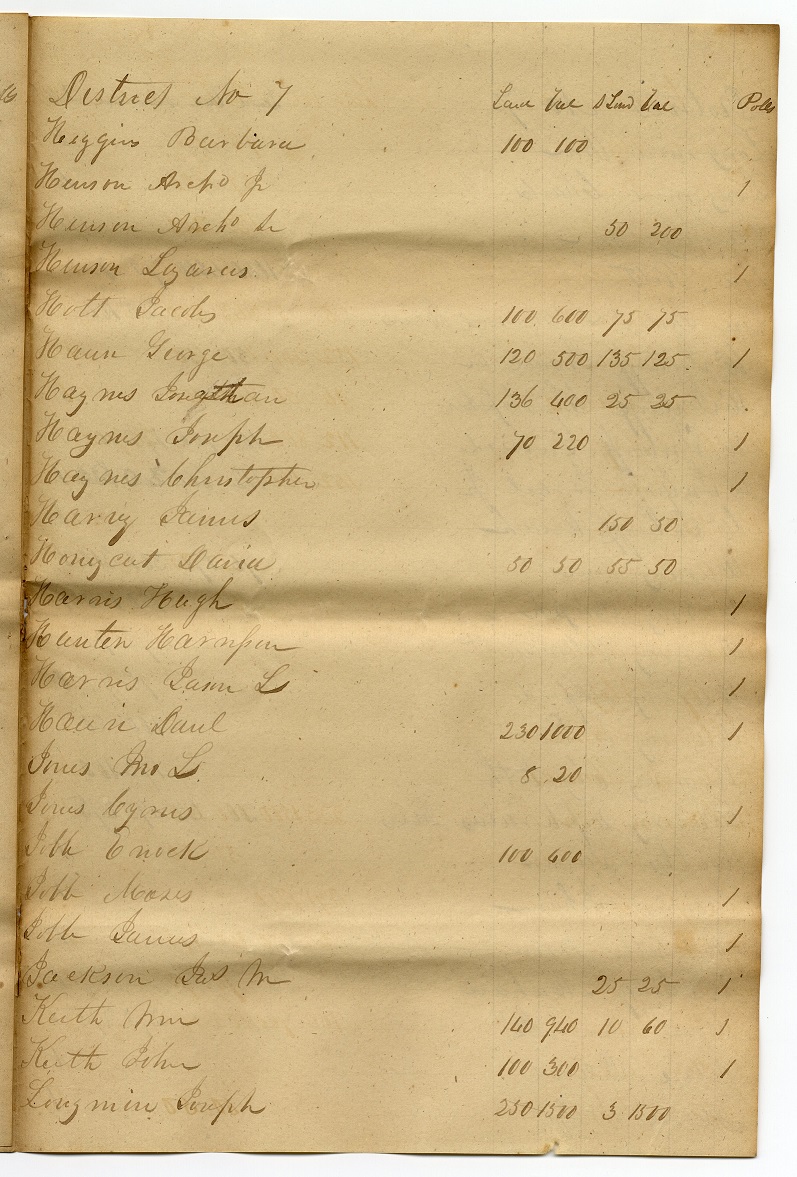 District No 7 Land Val S Land Val Polls
Higgins Barbara 100 100
Henson Archd Jr 1
Henson Archd Sr 50 200
Henson Lazarus 1
Holt Jacob 100 600 75 75
Haun George 120 500 135 125 1
Haynes Jonathan 136 400 25 25
Haynes Joseph 70 220 1
Haynes Christopher 1
Harvy James 150 50
Honycut David 50 50 55 50
Harris Hugh 1
Hunter 1
Harris Jason L 1
Haun Danl 230 1000 1
Jones Jno L 8 20
Jones Cyrus 1
Jobb Enock 100 400
Jobb Moses 1
Jobb James 1
Jackson Jas M 25 25 1
Keith Wm 140 940 10 60 1
Keith John 100 300 1
Longmire Joseph 250 1500 3 1500